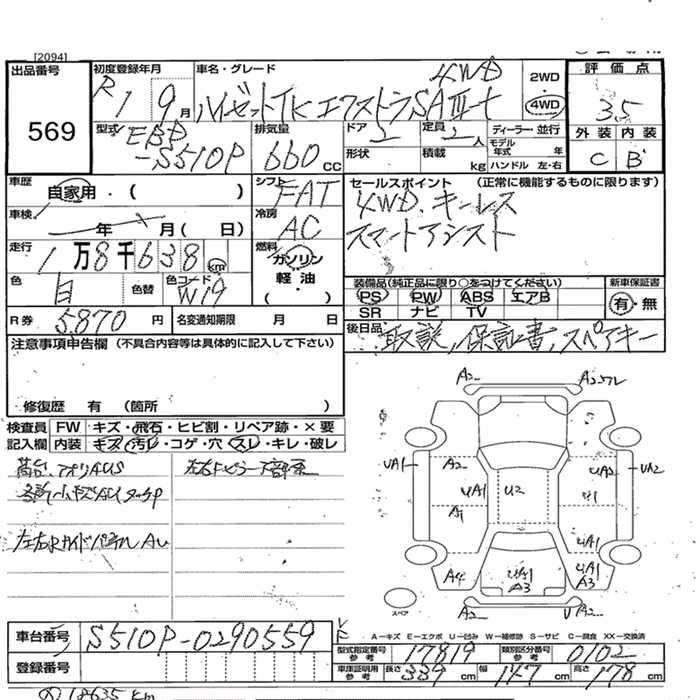 [2094]
出品番号
569
初度登録年月
R1 9月
車名・グレード
4WD
ハイゼットTK エクストラSAⅢt
2WD
4WD
評価点
3.5
外装 内装
C B
型式
EBD
-S510P
排気量
660 cc
ドア 2
形状
定員 2人
積載 kg
ディーラー・並行
モデル年式 年
ハンドル 左・右
車歴
自家用・( )
シフト
FAT
セールスポイント (正常に機能するものに限ります)
4WD、キーレス
スマートアシスト
車検
年 月( 日)
冷房
AC
走行
1万8千638km
燃料
ガソリン
軽油・
( )
色 白 色替
色コード W19
装備品(純正品に限り○をつけてください)
PS PW ABS エアB
SR ナビ TV
新車保証書
有・無
R券 5.870円
名変通知期限 月 日
後日品 取説,保証書,スペアキー
注意事項申告欄 (不具合内容等は具体的に記入して下さい)
修復歴 有 (箇所 )
検査員記入欄
FW キズ・飛石・ヒビ割・リペア跡・×要
内装 キズ・汚レ・コゲ・穴・スレ・キレ・破レ
左右サイドパネルAU
A2 A2
UA1 A2 UA1 U2 UA2 UA2
A1 U1
A4 UA1 A3 UA1 UA1 A3
A2 UA2
スペア
A−キズ E−エクボ U−凹み W−補修跡 S−サビ C−腐食 XX−交換済
車台番号 S510P-0290559
登録番号
型式指定番号 参考 17819
類別区分番号 参考 0102
車庫証明用 参考 長さ 339cm 幅 147cm 高さ 178cm
18635 km